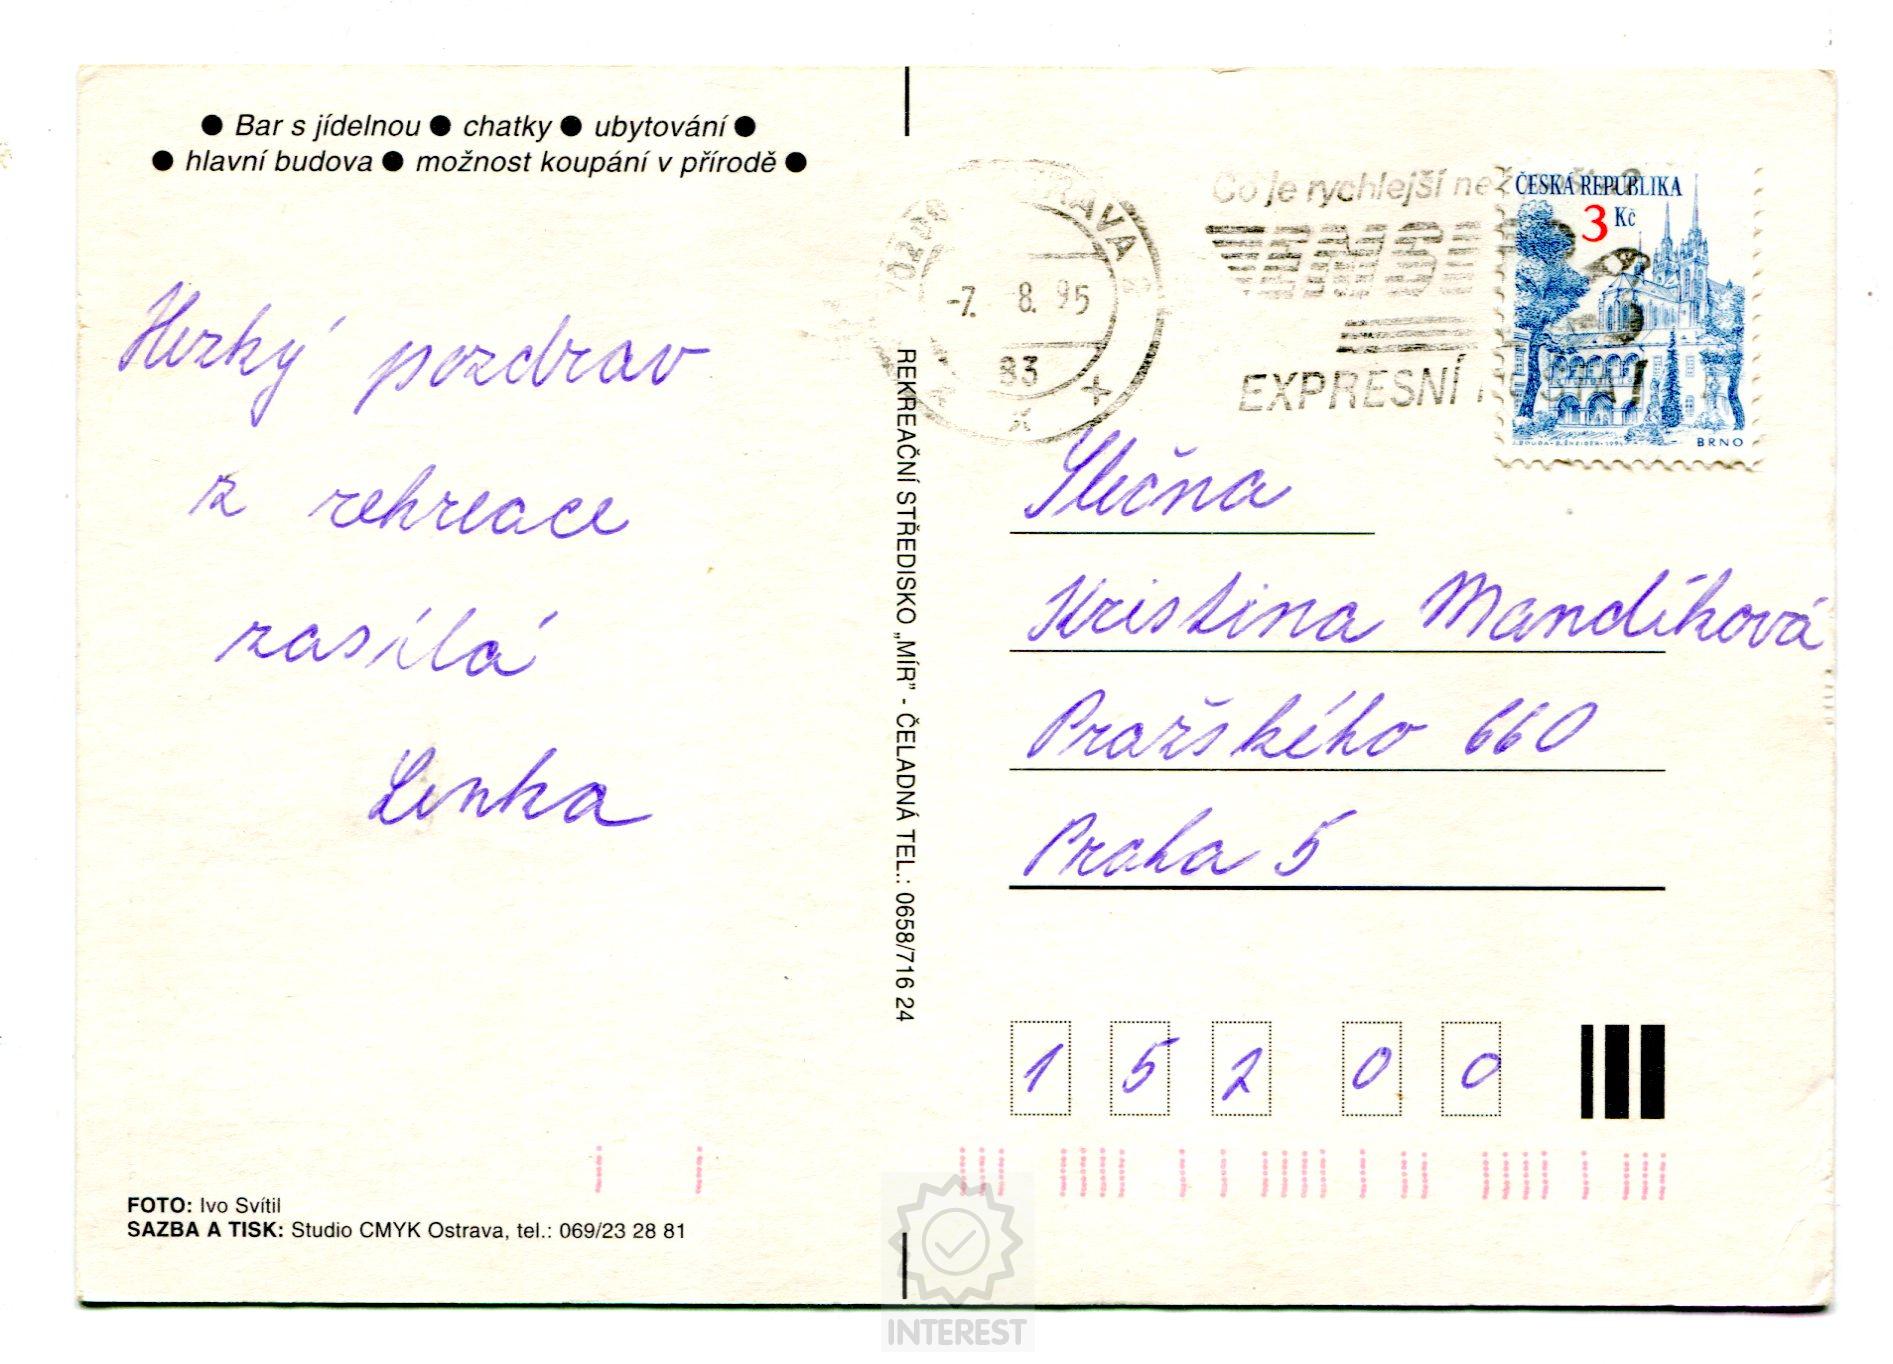 ● Bar s jídelnou ● chatky ● ubytování ●
● hlavní budova ● možnost koupání v přírodě ●
Hezký pozdrav
z rekreace
zasílá
Lenka
FOTO: Ivo Svítil
SAZBA A TISK: Studio CMYK Ostrava, tel.: 069/23 28 81
REKREAČNÍ STŘEDISKO „MÍR” - ČELADNÁ TEL.: 0658/716 24
-7. 8. 95
83
Co je rychlejší než
EXPRESNÍ
ČESKÁ REPUBLIKA
3 Kč
BRNO
Slečna
Kristina Mandíková
Pražského 660
Praha 5
1 5 2 0 0
INTEREST